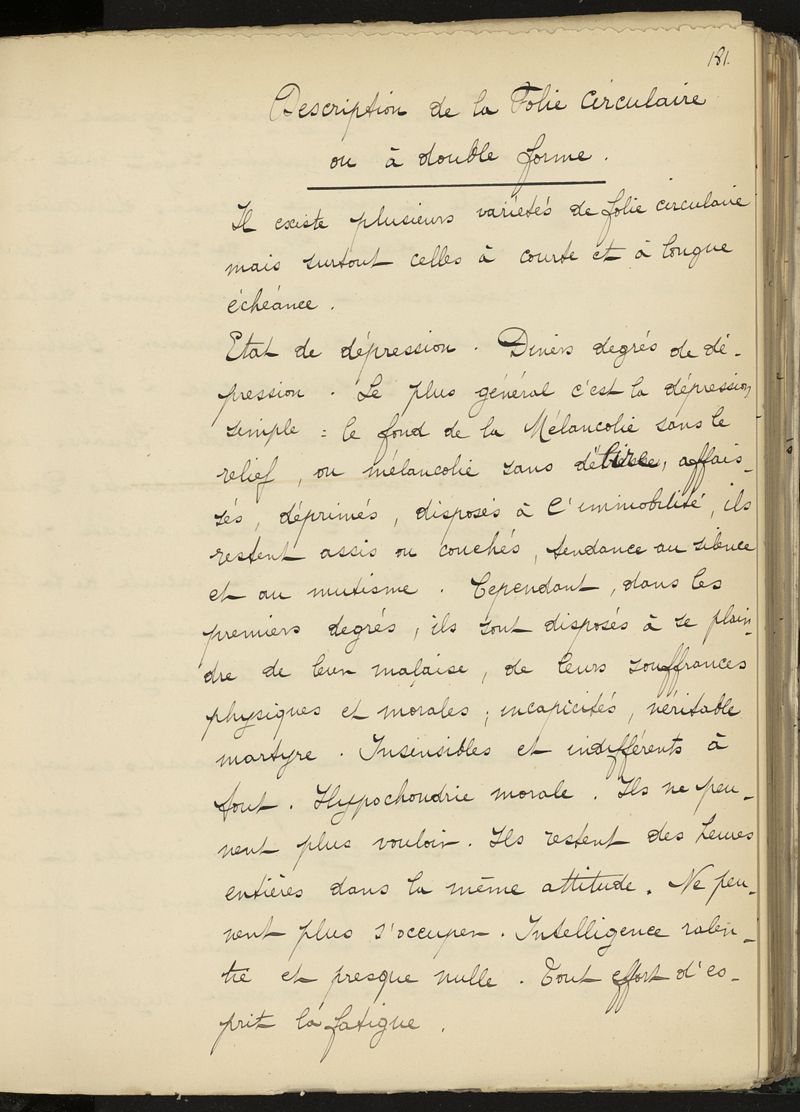 181.
Description de la Folie Circulaire
ou à double forme.
Il existe plusieurs variétés de folie circulaire
mais surtout celles à courte et à longue
échéance.
Etat de dépression. Divers degrés de dé-
pression. Le plus général c'est la dépression
simple = le fond de la Mélancolie sans le
relief, ou mélancolie sans délire, affais-
sés, déprimés, disposés à l'immobilité, ils
restent assis ou couchés, tendance au silence
et au mutisme. Cependant, dans les
premiers degrés, ils sont disposés à se plain-
dre de leur malaise, de leurs souffrances
physiques et morales; incapicités, véritable
martyre. Insensibles et indifférents à
tout. Hypochondrie morale. Ils ne peu-
vent plus vouloir. Ils restent des heures
entières dans la même attitude. Ne peu-
vent plus s'occuper. Intelligence ralen-
tie et presque nulle. Tout effort d'es-
prit la fatigue.